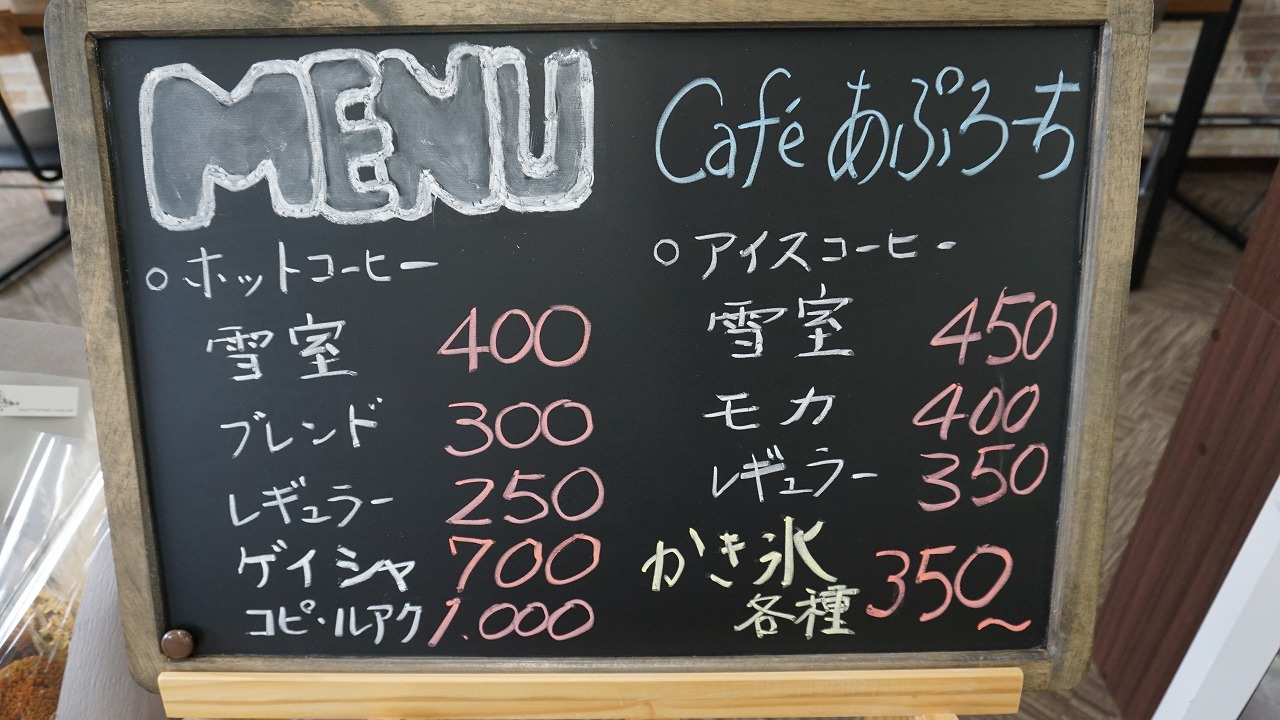 MENU
Café あぷろーち
○ ホットコーヒー
雪室 400
ブレンド 300
レギュラー 250
ゲイシャ 700
コピ・ルアク 1.000
○ アイスコーヒー
雪室 450
モカ 400
レギュラー 350
かき氷
各種 350~